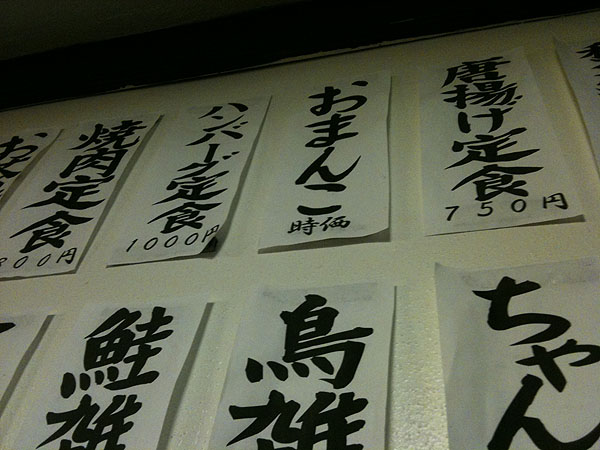 唐揚げ定食
750円
おまんこ
時価
ハンバーグ定食
1000円
焼肉定食
800円
ちゃん
鳥雑
鮭雑